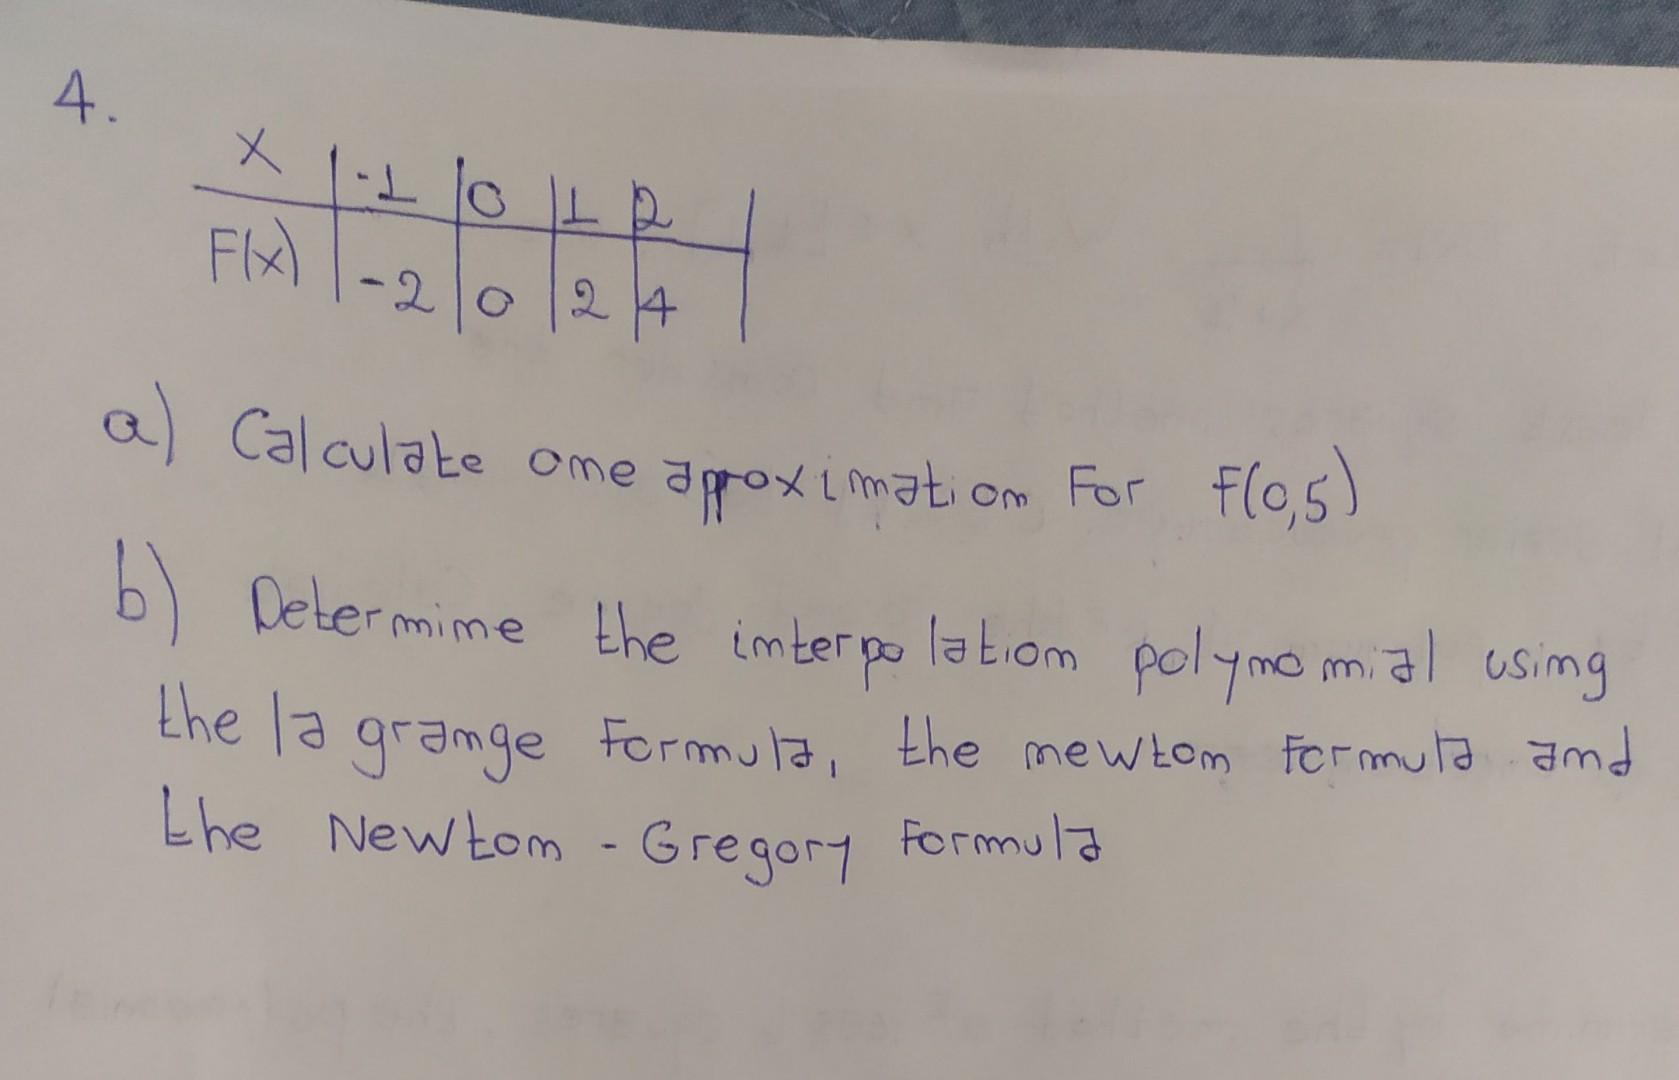 4.
x | -1 | 0 | 1 | 2 |
F(x) | -2 | 0 | 2 | 4 |
a) Calculate one aproximation For F(0,5)
b) Determine the interpolation polynomial using
the la grange Formula, the newton formula and
the Newton - Gregory Formula